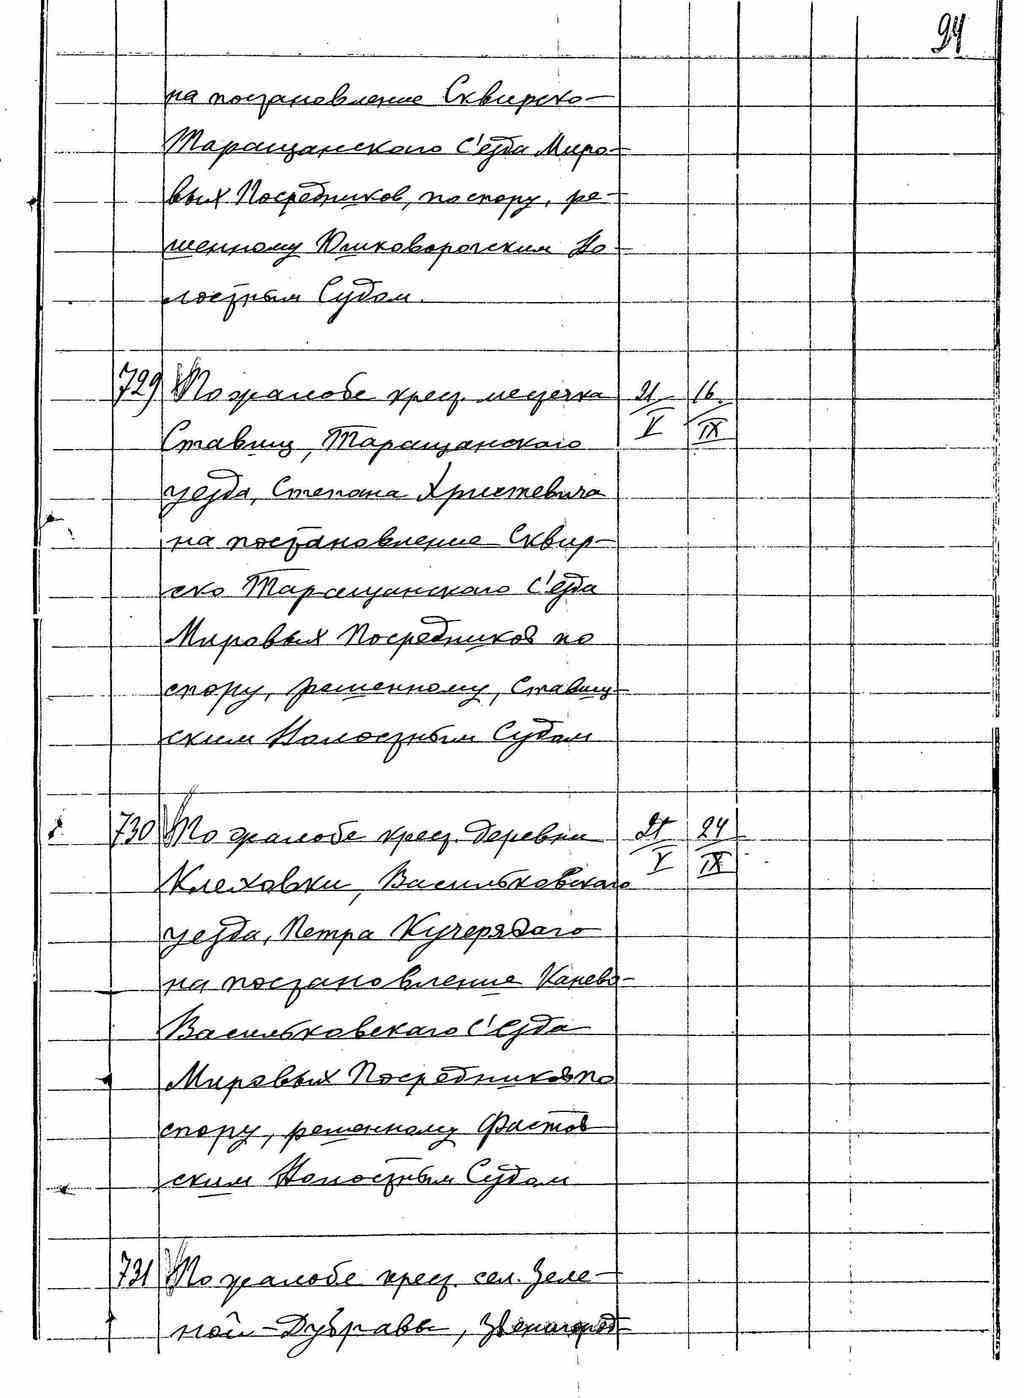 94
на постановление Сквирско-
Таращанского С'езда Миро-
вых Посредников, по спору, ре-
шенному Юшковорогским Во-
лостным Судом.
729 По жалобе крест. местечка 21/V 16/IX
Ставищ, Таращанского
уезда, Степана Христевича
на постановление Сквир-
ско Таращанского С'езда
Мировых Посредников по
спору, решенному, Ставищ-
ским Волостным Судом
730 По жалобе крест. деревни 21/V 24/IX
Клеховки, Васильковскаго
уезда, Петра Кучерявого
на постановление Канево-
Васильковскаго С'езда
Мировых Посредников по
спору, решенному Фастов
ским Волостным Судом
731 По жалобе крест. сел. Зеле-
ной-Дубравы, Звенигород-